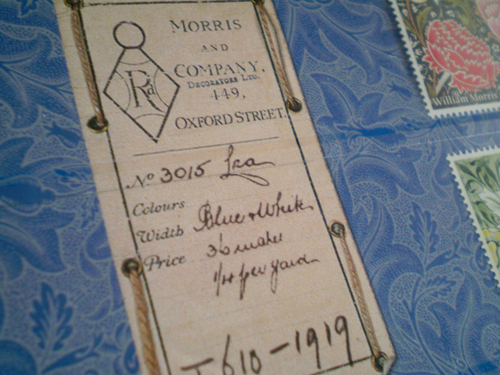 MORRIS
AND
COMPANY,
DECORATORS LTD.
449,
OXFORD STREET.
Rd
No 3015 Lea
Colours Blue & White
Width 36 inches
Price per yard
T 610-1919
William Morris